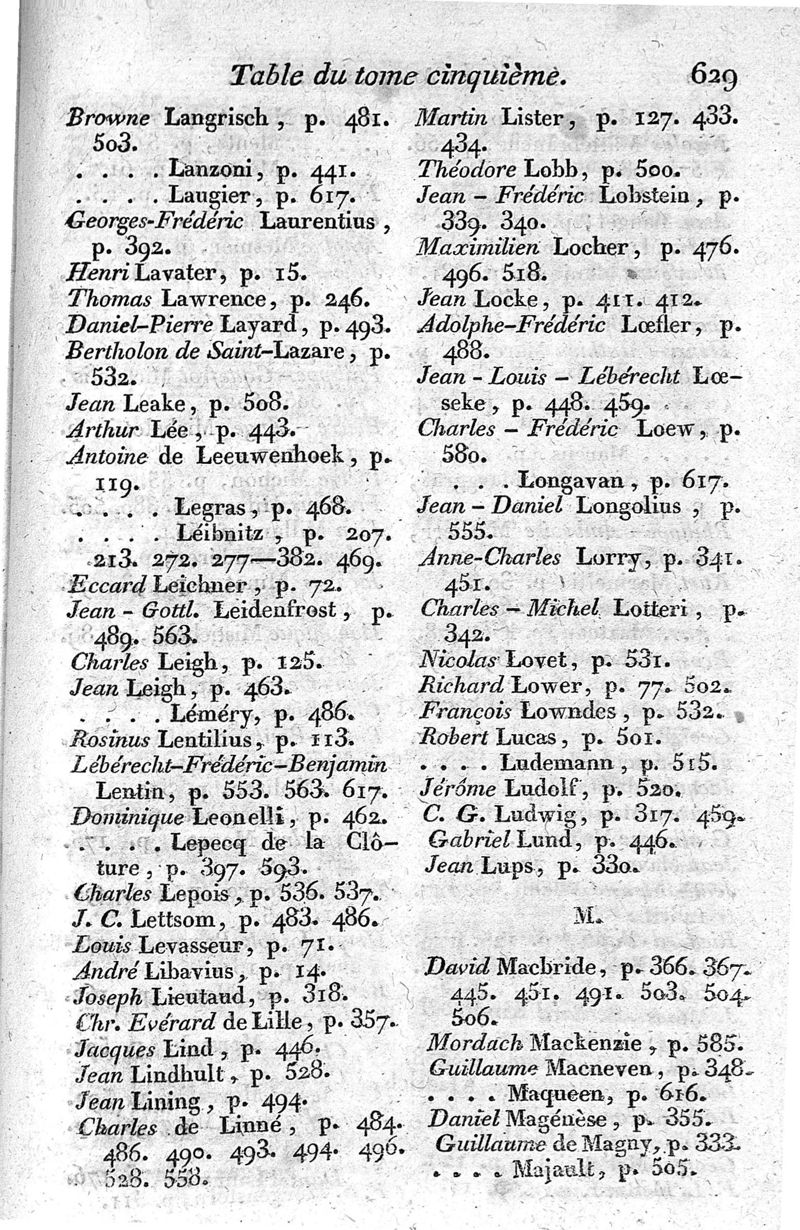 Table du tome cinquième. 629
Browne Langrisch, p. 481.
503.
. . . . Lanzoni, p. 441.
. . . . Laugier, p. 617.
Georges-Frédéric Laurentius,
p. 392.
Henri Lavater, p. 15.
Thomas Lawrence, p. 246.
Daniel-Pierre Layard, p. 493.
Bertholon de Saint-Lazare, p.
532.
Jean Leake, p. 508.
Arthur Lée, p. 443.
Antoine de Leeuwenhoek, p.
119.
. . . . Legras, p. 468.
. . . . Léibnitz, p. 207.
213. 272. 277—382. 469.
Eccard Leichner, p. 72.
Jean - Gottl. Leidenfrost, p.
489. 563.
Charles Leigh, p. 125.
Jean Leigh, p. 463.
. . . . Léméry, p. 486.
Rosinus Lentilius, p. 113.
Lébérecht-Frédéric-Benjamin
Lentin, p. 553. 563. 617.
Dominique Leonelli, p. 462.
. . . . Lepecq de la Clô-
ture, p. 397. 593.
Charles Lepois, p. 536. 537.
J. C. Lettsom, p. 483. 486.
Louis Levasseur, p. 71.
André Libavius, p. 14.
Joseph Lieutaud, p. 318.
Chr. Evérard de Lille, p. 357.
Jacques Lind, p. 446.
Jean Lindhult, p. 528.
Jean Lining, p. 494.
Charles de Linné, p. 484.
486. 490. 493. 494. 496.
528. 558.
Martin Lister, p. 127. 433.
434.
Théodore Lobb, p. 500.
Jean - Frédéric Lobstein, p.
339. 340.
Maximilien Locher, p. 476.
496. 518.
Jean Locke, p. 411. 412.
Adolphe-Frédéric Lœfler, p.
488.
Jean - Louis - Lébérecht Lœ-
seke, p. 448. 459.
Charles - Frédéric Loew, p.
580.
. . . . Longavan, p. 617.
Jean - Daniel Longolius, p.
555.
Anne-Charles Lorry, p. 341.
451.
Charles - Michel Lotteri, p.
342.
Nicolas Lovet, p. 531.
Richard Lower, p. 77. 502.
François Lowndes, p. 532.
Robert Lucas, p. 501.
. . . . Ludemann, p. 515.
Jérôme Ludolf, p. 520.
C. G. Ludwig, p. 317. 459.
Gabriel Lund, p. 446.
Jean Lups, p. 330.
M.
David Macbride, p. 366. 367.
445. 451. 491. 503. 504.
506.
Mordach Mackenzie, p. 585.
Guillaume Macneven, p. 348.
. . . . Maqueen, p. 616.
Daniel Magénèse, p. 355.
Guillaume de Magny, p. 333.
. . . . Majault, p. 505.